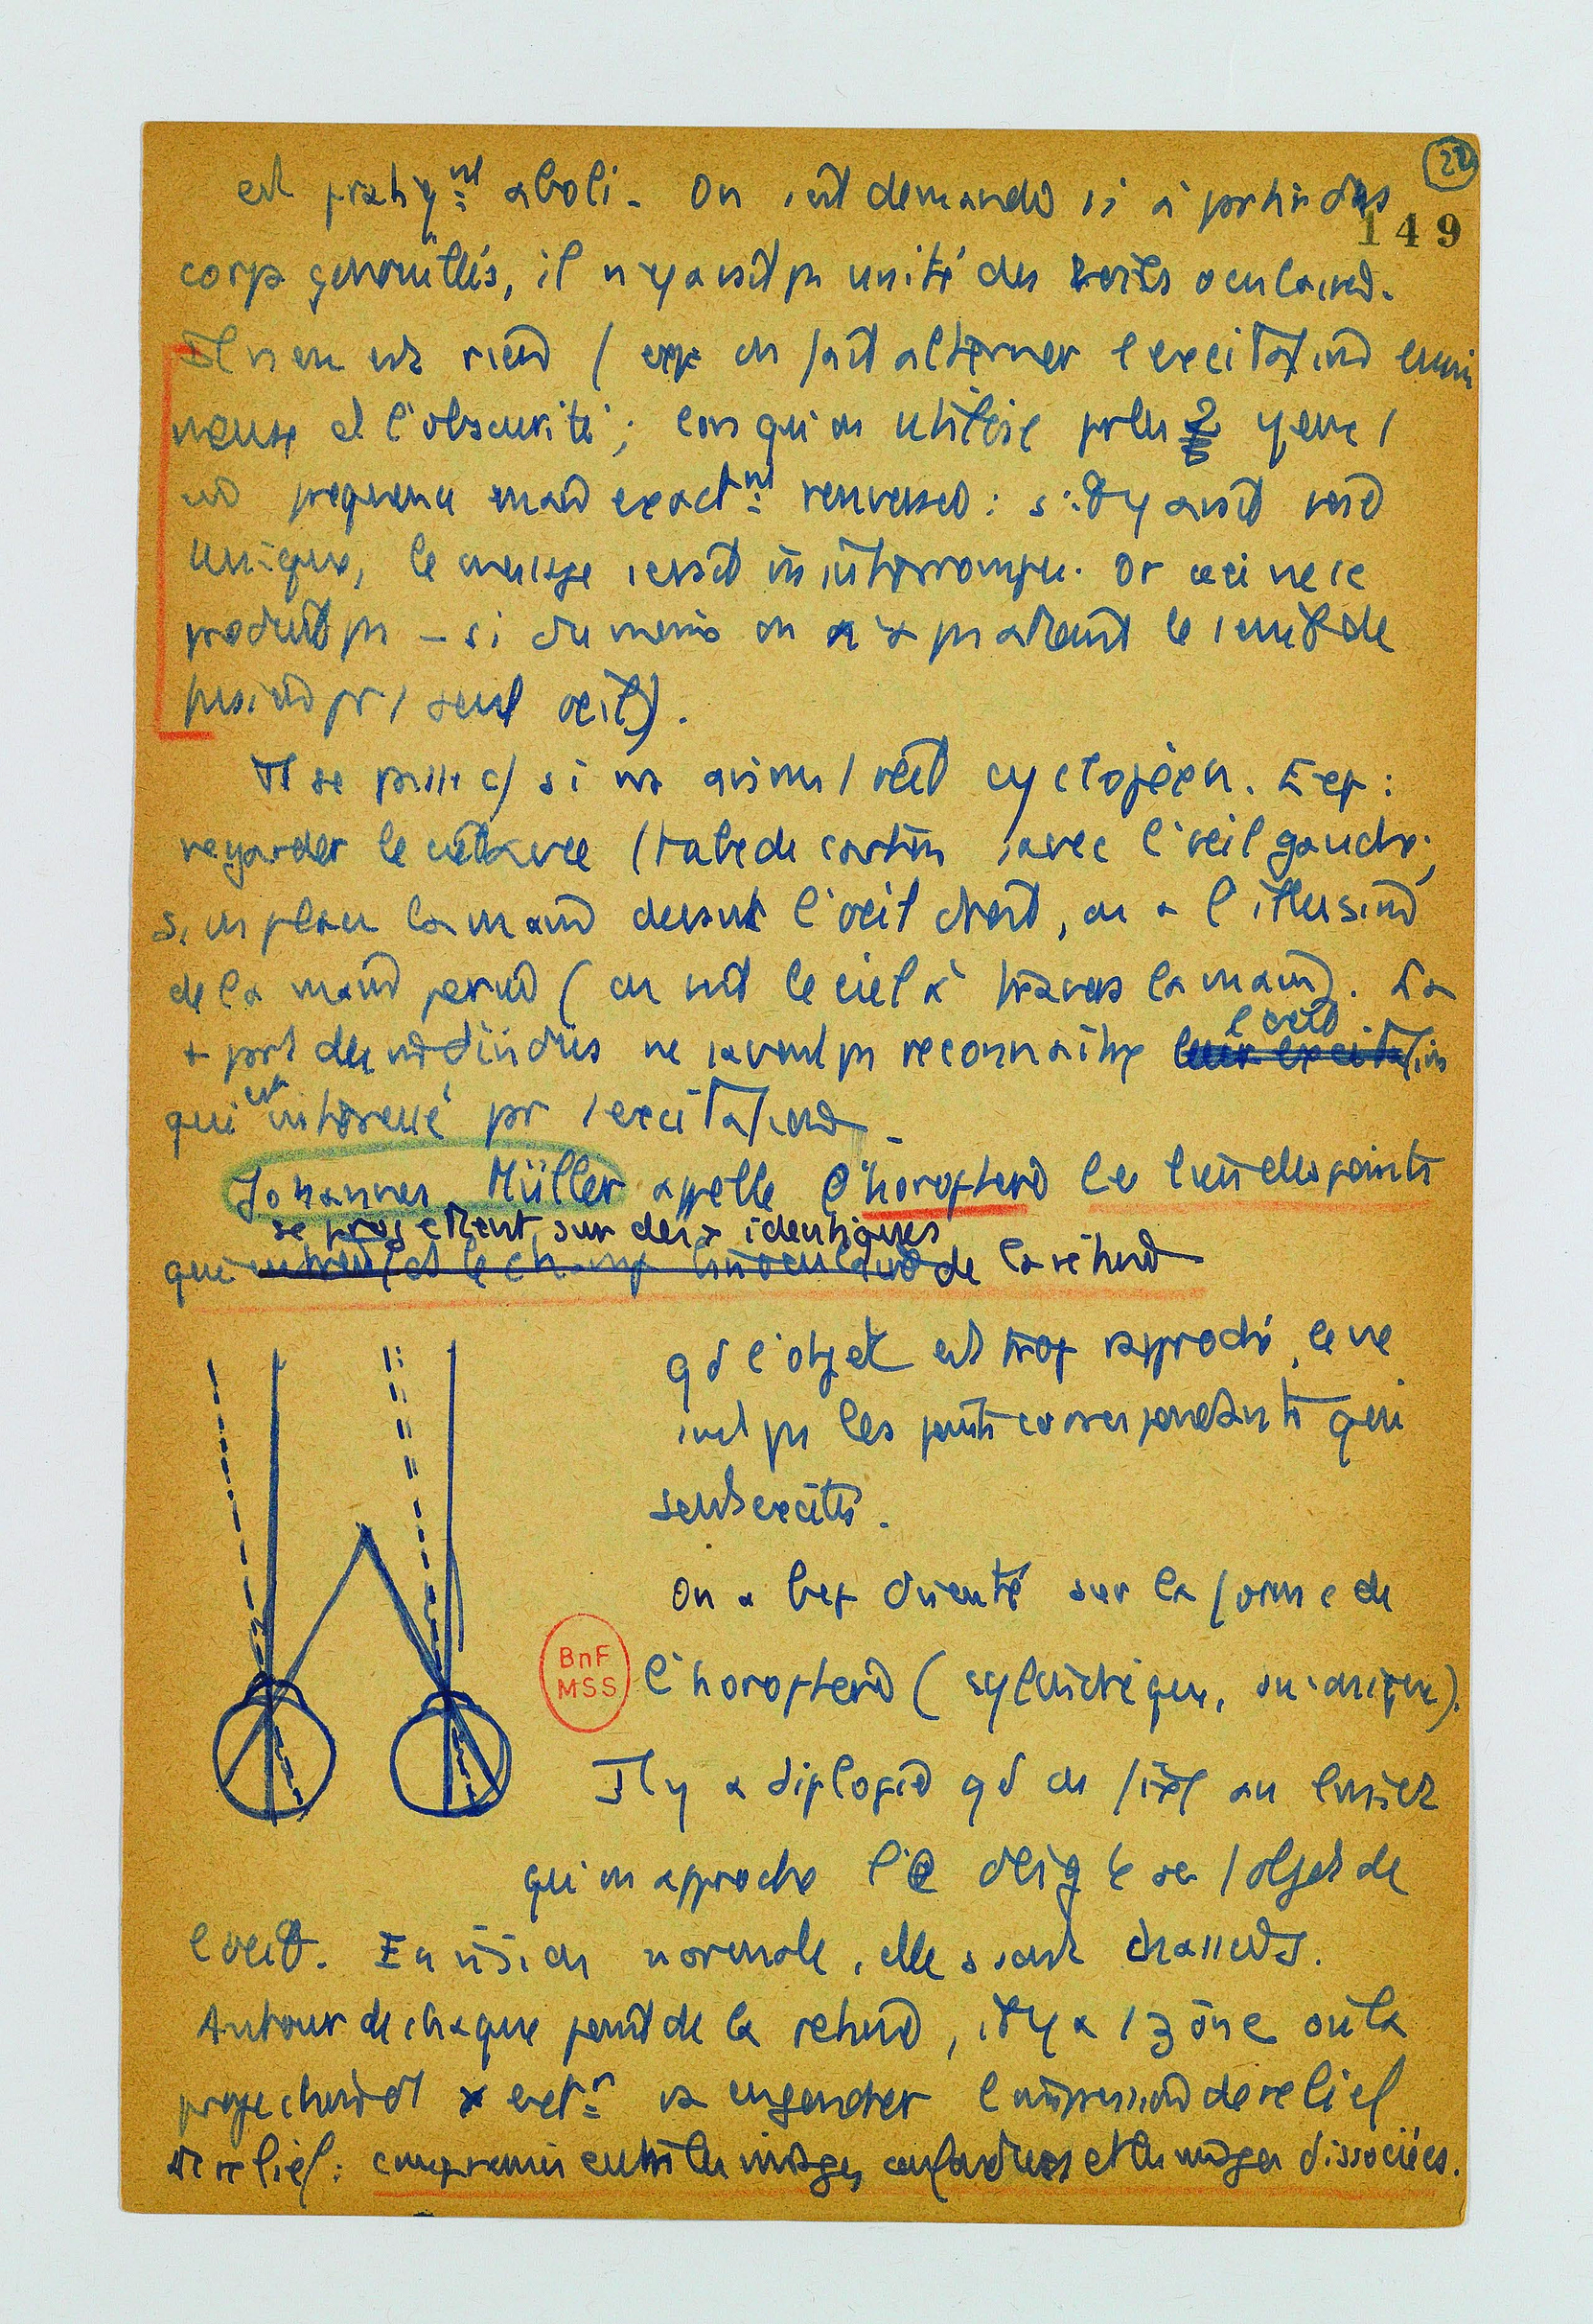 22
149
est pratiqnt aboli. On s'est demandé si à partir des
corps genouillés, il n'y avait pas unité des voies oculaires.
Il n'en est rien (exp on fait alterner l'excitation lumi
neuse et l'obscurité ; lorsqu'on utilise les 2 yeux /
exactnt renversée : s'il y avait voie
unique, le message serait ininterrompu. Or ceci ne se
produit pas – si du moins on n'a pas atteint le seuil de
fusion pr / seul oeil).
Il se passe c/ si ns avions / oeil cyclopéen. Exp :
regarder le ciel avec / tube de carton, avec l'oeil gauche ;
si on place la main devant l'oeil droit, on a l'illusion
de la main percée (on voit le ciel à travers la main). La
+ part des individus ne savent pas reconnaître l'oeil
qui est intéressé par / excitation.
Johannes Müller appelle l'horoptère le lieu des points
qui se projettent sur des x identiques de la rétine
qd l'objet est trop rapproché, ce ne
sont pas les points correspondants qui
sont excités.
On a bcp discuté sur la forme de
BnF
MSS
l'horoptère (cylindrique,
Il y a diplopie qd on fixe au lointain
qu'on approche
l'oeil. En vision normale, elles sont chassées.
Autour de chaque point de la rétine, il y a / zône où la
projection va engendrer l'impression de relief
Le relief : compromis entre les images confondues et les images dissociées.